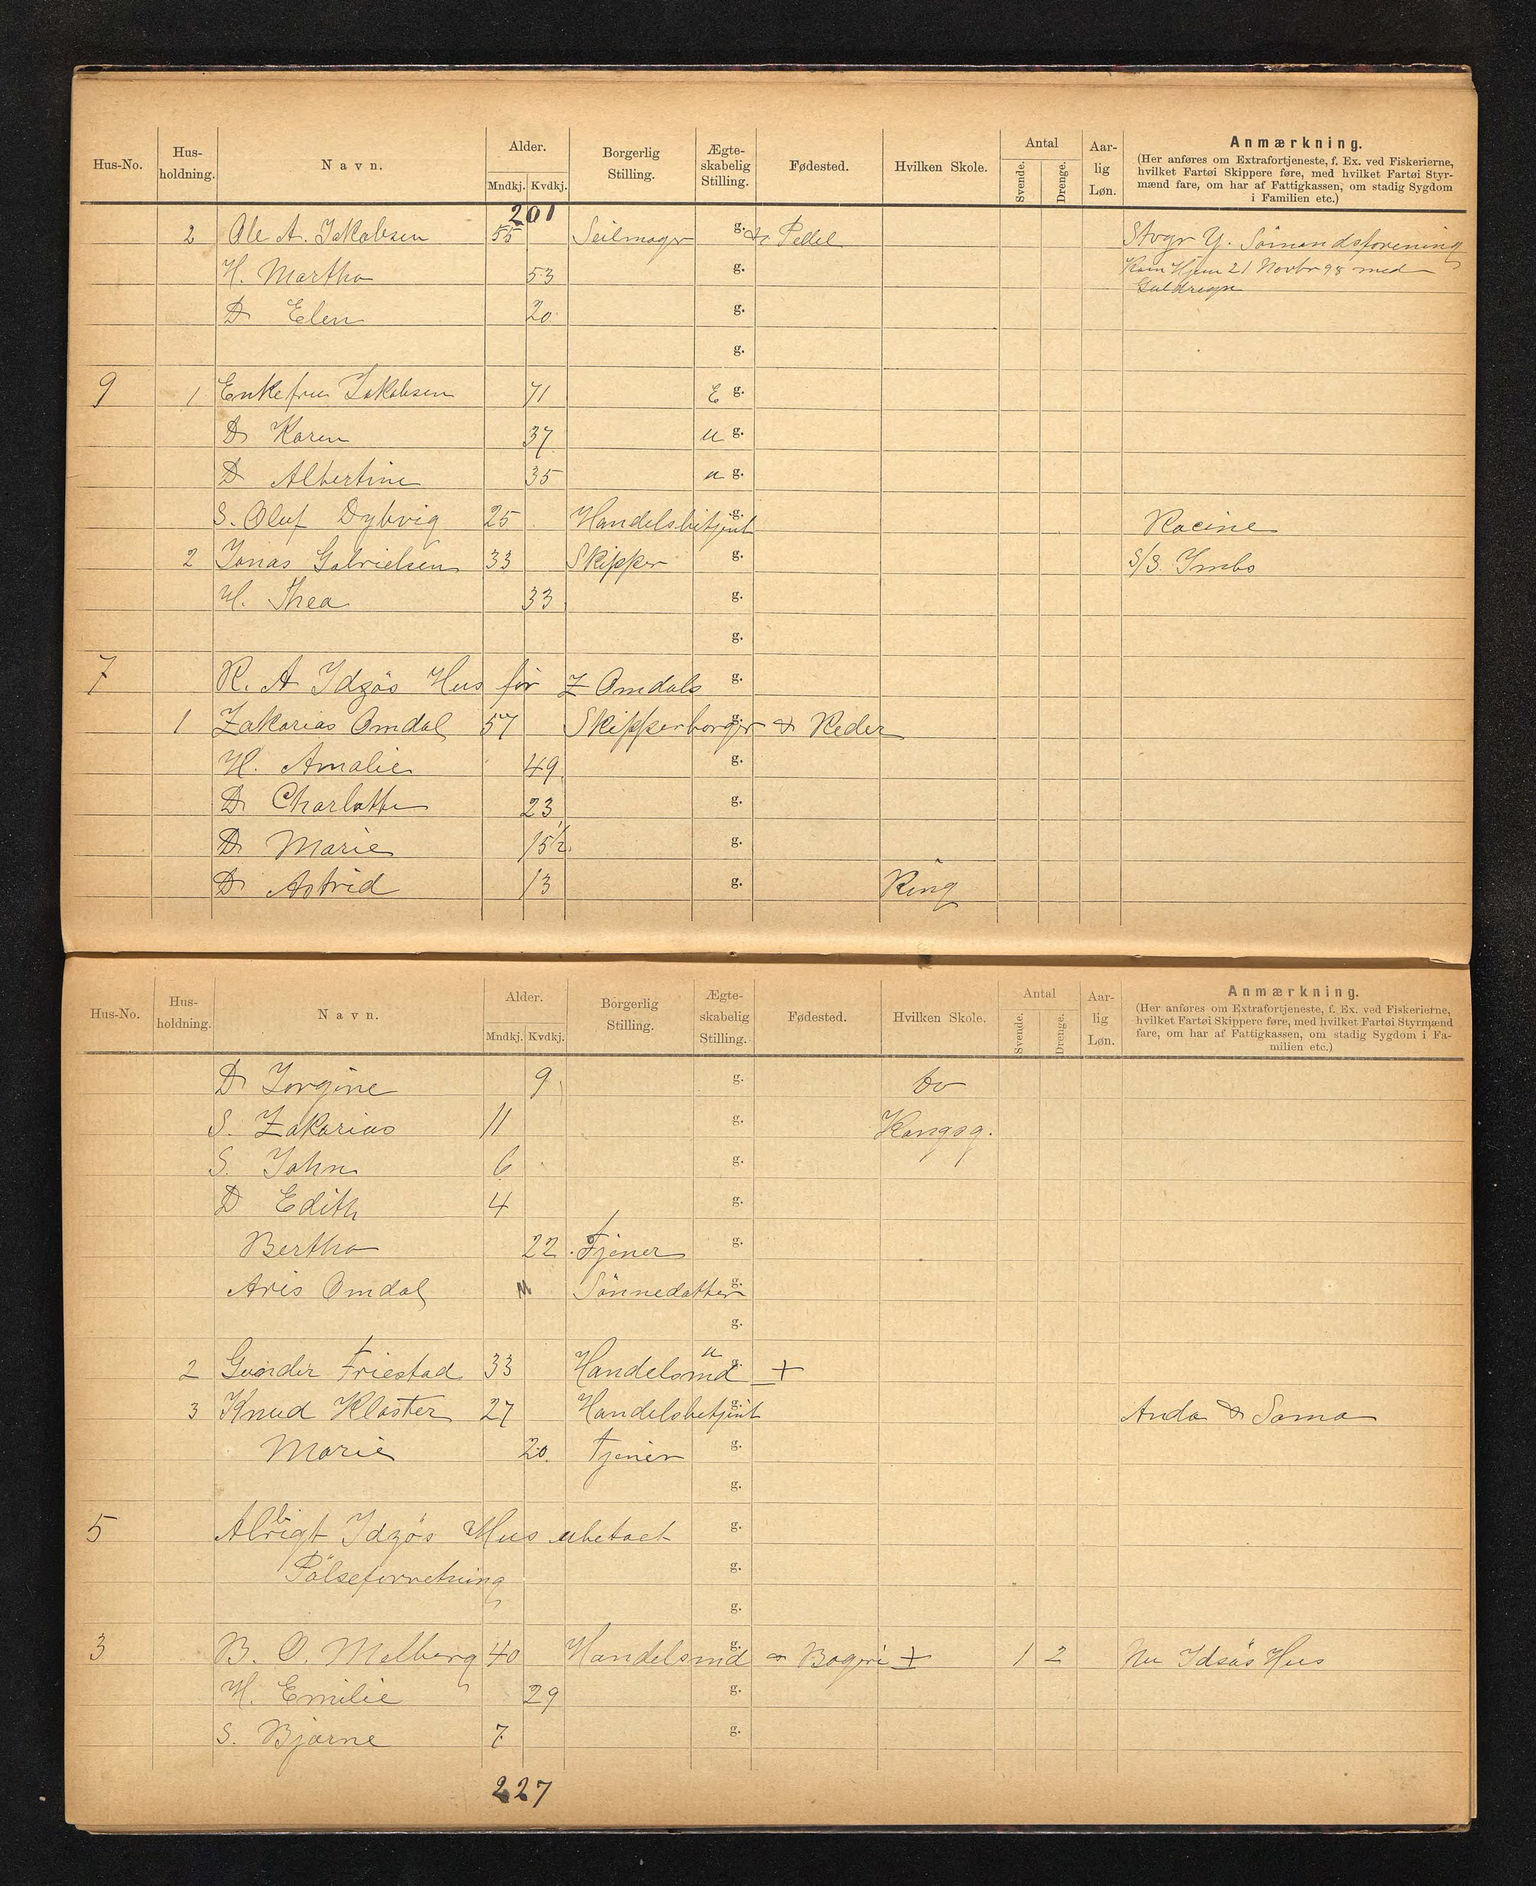 Hus-No. Hus-holdning. Navn. Alder. Mndkj. Kvdkj. Borgerlig Stilling. Ægte-skabelig Stilling. Fødested. Hvilken Skole. Antal Svende. Drenge. Aar-lig Løn. Anmærkning.
(Her anføres om Extrafortjeneste, f. Ex. ved Fiskerierne,
hvilket Fartøi Skippere føre, med hvilket Fartøi Styr-
mænd fare, om har af Fattigkassen, om stadig Sygdom
i Familien etc.)
201
2 Ole A. Jakobsen 55 Seilmager g. & Pedel Stvgr Y. Sömandsforening
H. Martha 53 g. Kom Hjem 21 Novbr 98 med
Guldregn
D Elen 20 g.
g.
9 1 Enkefru Jakobsen 71 E g.
D Karen 37 u g.
D Albertine 35 u g.
S. Oluf Dybvig 25 Handelsbetjent g. Racine
2 Jonas Gabrielsen 33 Skipper g. S/S. Imbs
H. Thea 33 g.
g.
7 R. A Idzös Hus för Z Omdals g.
1 Zakarias Omdal 57 Skipperborger g. & Reder
H. Amalie 49 g.
D Charlotte 23 g.
D Marie 15 1/2 g.
D Astrid 13 g. Ring
Hus-No. Hus-holdning. Navn. Alder. Mndkj. Kvdkj. Borgerlig Stilling. Ægte-skabelig Stilling. Fødested. Hvilken Skole. Antal Svende. Drenge. Aar-lig Løn. Anmærkning.
(Her anføres om Extrafortjeneste, f. Ex. ved Fiskerierne,
hvilket Fartøi Skippere føre, med hvilket Fartøi Styrmænd
fare, om har af Fattigkassen, om stadig Sygdom i Fa-
milien etc.)
D Jorgine 9 g. do
S. Zakarias 11 g. Kongsg.
S. John 6 g.
D Edith 4 g.
Bertha 22 Tjener g.
Aris Omdal 11 Sönnedatter g.
g.
2 Gunder Friestad 33 Handelsmd u g. +
3 Knud Kloster 27 Handelsbetjent g. Anda & Soma
Marie 20 Tjener g.
g.
5 Albrigt Idzös Hus ubetoet g.
Pölseforretning g.
g.
3 B. O. Melberg 40 Handelsmd g. & Bageri + 1 2 Nu Idsös Hus
H. Emilie 29 g.
S. Bjarne 7 g.
227